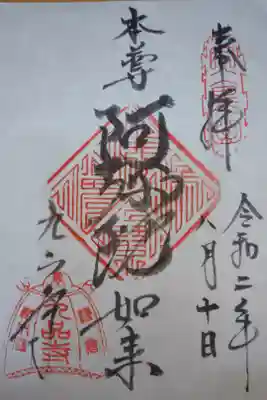 奉拝
令和二年
八月十日
本尊
阿弥陀如来
九品寺
九品寺